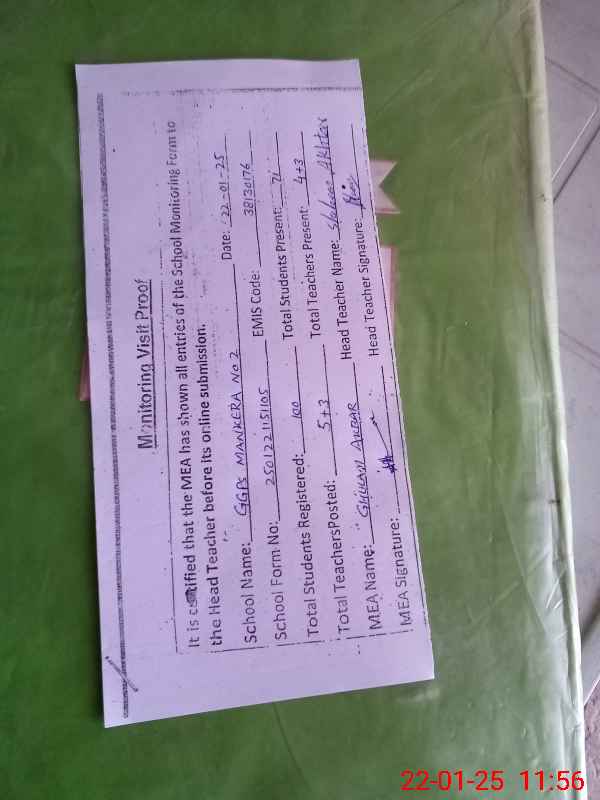 Monitoring Visit Proof
It is certified that the MEA has shown all entries of the School Monitoring Form to
the Head Teacher before its online submission.
School Name: GGPS MANKERA No 2 Date: 22-01-25
School Form No: 2501221151105 EMIS Code: 38130176
Total Students Registered: 100 Total Students Present: 71
Total TeachersPosted: 5+3 Total Teachers Present: 4+3
MEA Name: AKBAR Head Teacher Name: Akhtar
MEA Signature: Head Teacher Signature:
22-01-25 11:56